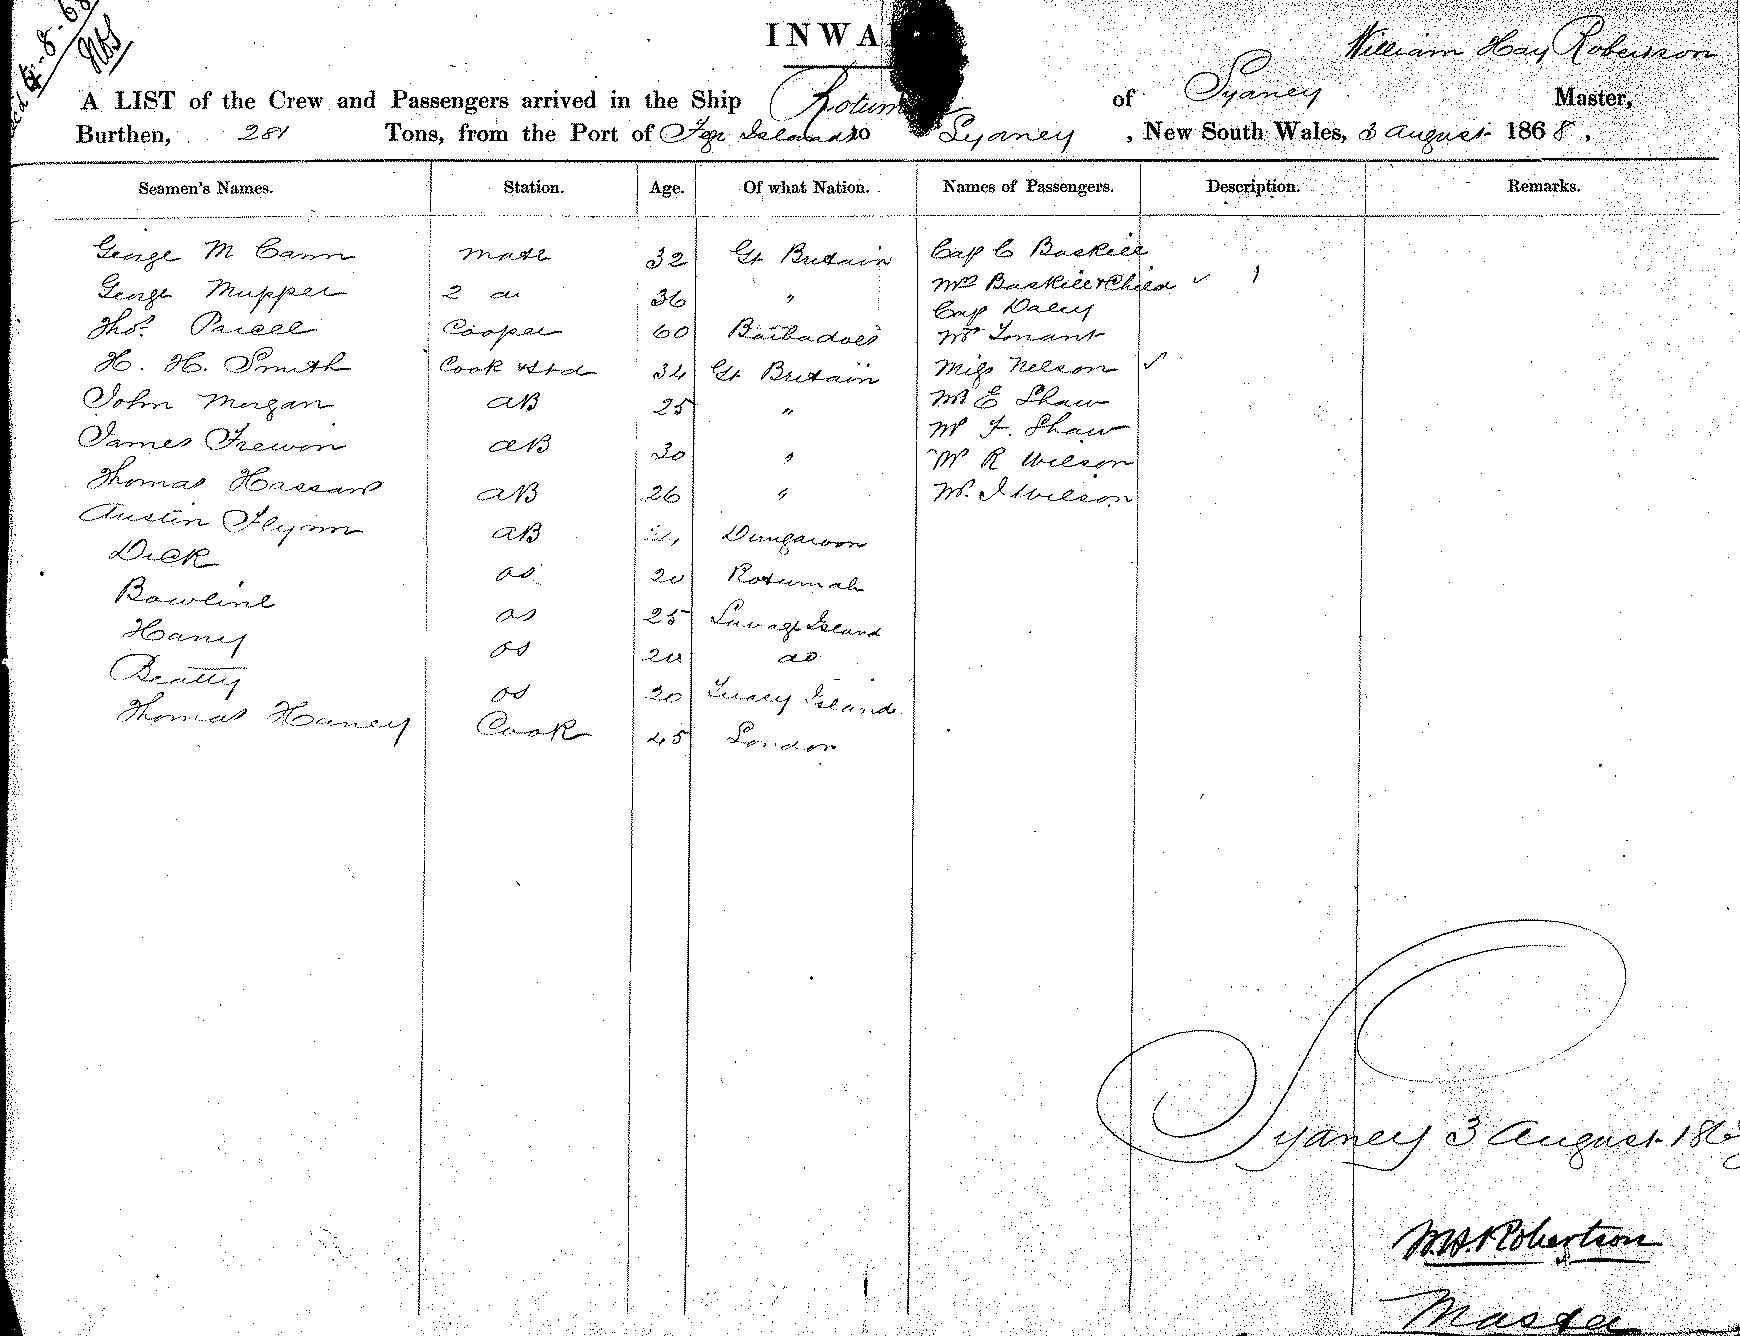 INWA
William Hay Robertson
A LIST of the Crew and Passengers arrived in the Ship Rotum of Sydney Master,
Burthen, 281 Tons, from the Port of Islands to Sydney , New South Wales, 3 August 1868.
Seamen's Names. Station. Age. Of what Nation. Names of Passengers. Description. Remarks.
George M Cann Mate 32 Gt Britain Cap C Baskill
George Mupper 2 do 36 " Mrs Baskill & Child ✓ 1
Cap Daley
Thos. Cooper 60 Barbadoes Mr Tenant
H. H. Smith Cook & Std 34 Gt Britain Miss Nelson ✓
John Morgan AB 25 " Mr E Shaw
James Trewin AB 30 " Mr F. Shaw
Mr R Wilson
Thomas Hassan AB 26 " Mr. J Wilson
Austin Flynn AB Dungarvon
Dick OS 20 Rotumah
Bowline OS 25 Savage Island
Haney OS do
Beatty OS 20 Island
Thomas Haney Cook 45 London
Sydney 3 August 186
W.H. Robertson
Master